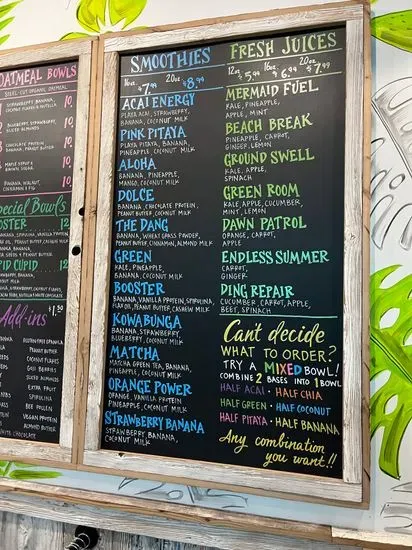 OATMEAL BOWLS
STEEL-CUT ORGANIC OATMEAL
STRAWBERRY, BANANA,
10
BLUEBERRY, STRAWBERRY,
SLICED ALMONDS
10
CHOCOLATE PROTEIN,
BANANA, PEANUT BUTTER
10
MAPLE SYRUP &
BROWN SUGAR
BANANA, WALNUT,
CINNAMON
10
Special Bowls
12
CUPID
12
Add-ins
$1.50
PEANUT BUTTER
COCONUT
GOJI BERRIES
SLICED ALMONDS
FRUIT
SPIRULINA
BEE POLLEN
WHITE CHOCOLATE
SMOOTHIES
16oz $7.99 20oz $8.99
ACAI ENERGY
PLAYA ACAI, STRAWBERRY,
BANANA, COCONUT MILK
PINK PITAYA
PLAYA PITAYA, BANANA,
PINEAPPLE, COCONUT MILK
ALOHA
BANANA, PINEAPPLE,
MANGO, COCONUT MILK
DOLCE
BANANA, CHOCOLATE PROTEIN,
PEANUT BUTTER, COCONUT MILK
THE DANG
BANANA, WHEAT GRASS POWDER,
PEANUT BUTTER, CINNAMON, ALMOND MILK
GREEN
KALE, PINEAPPLE,
BANANA, COCONUT MILK
BOOSTER
BANANA, VANILLA PROTEIN, SPIRULINA,
FLAX OIL, PEANUT BUTTER, CASHEW MILK
KOWABUNGA
BANANA, STRAWBERRY,
BLUEBERRY, COCONUT MILK
MATCHA
MATCHA GREEN TEA, BANANA,
PINEAPPLE, COCONUT MILK
ORANGE POWER
ORANGE, VANILLA PROTEIN
PINEAPPLE, COCONUT MILK
STRAWBERRY BANANA
STRAWBERRY, BANANA,
COCONUT MILK
FRESH JUICES
12oz $5.99 16oz $6.99 20oz $7.99
MERMAID FUEL
KALE, PINEAPPLE,
APPLE, MINT
BEACH BREAK
PINEAPPLE, CARROT,
GINGER, LEMON
GROUND SWELL
KALE, APPLE,
SPINACH
GREEN ROOM
KALE, APPLE, CUCUMBER,
MINT, LEMON
DAWN PATROL
ORANGE, CARROT,
APPLE
ENDLESS SUMMER
CARROT, APPLE,
GINGER
DING REPAIR
CUCUMBER, CARROT, APPLE,
BEET, SPINACH
Can't decide
WHAT TO ORDER?
TRY A MIXED BOWL!
COMBINE 2 BASES INTO 1 BOWL
HALF ACAI • HALF CHIA
HALF GREEN • HALF COCONUT
HALF PITAYA • HALF BANANA
Any combination
you want!!